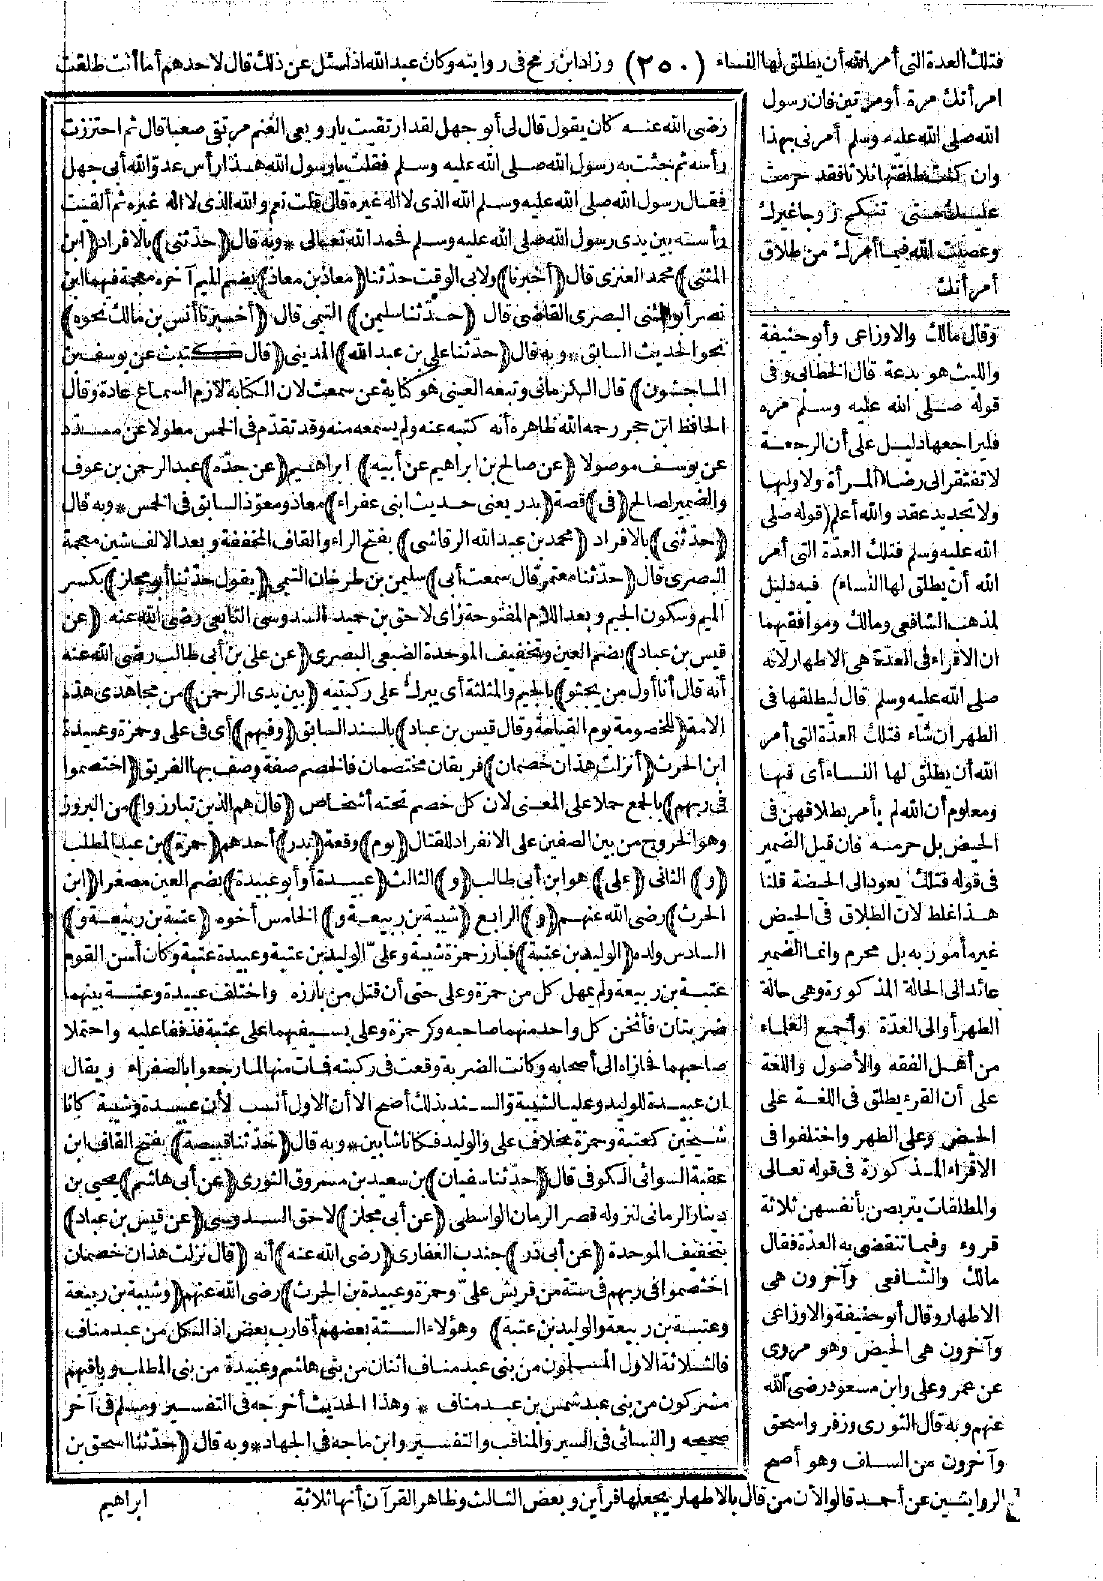 فتلك العدة التى أمر الله أن يطلق لها النساء (٢٥٠) وزاد ابن رمح فى روايته وكان عبد الله اذا سئل عن ذلك قال لاحدهم أما أنت طلقت
امرأتك مرة أو مرتين فان رسول
الله صلى الله عليه وسلم أمرنى بهذا
وان كنت طلقتها ثلاثا فقد حرمت
عليك حتى تنكح زوجا غيرك
وعصيت الله فيما أمرك من طلاق
امرأتك
وقال مالك والاوزاعى وأبو حنيفة
والليث هو بدعة قال الخطابى وفى
قوله صلى الله عليه وسلم مره
فليراجعها دليل على أن الرجعة
لا تفتقر الى رضا المرأة ولا وليها
ولا تجديد عقد والله أعلم (قوله صلى
الله عليه وسلم فتلك العدة التى أمر
الله أن يطلق لها النساء) فيه دليل
لمذهب الشافعى ومالك وموافقيهما
ان الاقراء فى العدة هى الاطهار لانه
صلى الله عليه وسلم قال ليطلقها فى
الطهر ان شاء فتلك العدة التى أمر
الله أن يطلق لها النساء أى فيها
ومعلوم أن الله لم يأمر بطلاقهن فى
الحيض بل حرمه فان قيل الضمير
فى قوله فتلك يعود الى الحيضة قلنا
هذا غلط لان الطلاق فى الحيض
غير مأمور به بل محرم وانما الضمير
عائد الى الحالة المذكورة وهى حالة
الطهر أو الى العدة وأجمع العلماء
من أهل الفقه والأصول واللغة
على أن القرء يطلق فى اللغة على
الحيض وعلى الطهر واختلفوا فى
الاقراء المذكورة فى قوله تعالى
والمطلقات يتربصن بأنفسهن ثلاثة
قروء وفيما تنقضى به العدة فقال
مالك والشافعى وآخرون هى
الاطهار وقال أبو حنيفة والاوزاعى
وآخرون هى الحيض وهو مروى
عن عمر وعلى وابن مسعود رضى الله
عنهم وبه قال الثورى وزفر واسحق
وآخرون من السلف وهو أصح
الروايتين عن أحمد قالوا لأن من قال بالاطهار يجعلها قرأين وبعض الثالث وظاهر القرآن أنها ثلاثة
رضى الله عنه كان يقول قال لى أبو جهل لقد ارتقيت يا رويعى الغنم مرتقى صعبا قال ثم احتززت
رأسه ثم جئت به رسول الله صلى الله عليه وسلم فقلت يا رسول الله هذا رأس عدو الله أبى جهل
فقال رسول الله صلى الله عليه وسلم الله الذى لا اله غيره قال قلت نعم والله الذى لا اله غيره ثم ألقيت
رأسه بين يدى رسول الله صلى الله عليه وسلم فحمد الله تعالى * وبه قال (حدثنى) بالافراد (ابن
المثنى) محمد العنزى قال (أخبرنا) ولابى الوقت حدثنا (معاذ بن معاذ) بضم الميم آخره معجمة فيهما ابن
نصر أبو المثنى البصرى القاضى قال (حدثنا سليمن) التيمى قال (أخبرنا أنس بن مالك نحوه)
نحو الحديث السابق * وبه قال (حدثنا على بن عبد الله) المدينى (قال كتبت عن يوسف بن
الماجشون) قال الكرمانى وتبعه العينى هو كناية عن سمعت لان الكتابة لازم السماع عادة وقال
الحافظ ابن حجر رحمه الله ظاهره أنه كتبه عنه ولم يسمعه منه وقد تقدم فى الخمس مطولا عن مسدد
عن يوسف موصولا (عن صالح بن ابراهيم عن أبيه) ابراهيم (عن جده) عبد الرحمن بن عوف
والضمير لصالح (فى) قصة (بدر يعنى حديث ابنى عفراء) معاذ ومعوذ السابق فى الخمس * وبه قال
(حدثنى) بالافراد (محمد بن عبد الله الرقاشى) بفتح الراء والقاف المخففة وبعد الالف شين معجمة
البصرى قال (حدثنا معتمر قال سمعت أبى) سليمن بن طرخان التيمى (يقول حدثنا أبو مجلز) بكسر
الميم وسكون الجيم وبعد اللام المفتوحة زاى لاحق بن حميد السدوسى التابعى رضى الله عنه (عن
قيس بن عباد) بضم العين وتخفيف الموحدة الضبعى البصرى (عن على بن أبى طالب رضى الله عنه
أنه قال أنا أول من يجثو) بالجيم والمثلثة أى يبرك على ركبتيه (بين يدى الرحمن) من مجاهدى هذه
الامة (للخصومة يوم القيامة وقال قيس بن عباد) بالسند السابق (وفيهم) أى فى على وحمزة وعبيدة
ابن الحرث (أنزلت هذان خصمان) فريقان مختصمان فالخصم صفة وصف بها الفريق (اختصموا
فى ربهم) بالجمع حملا على المعنى لان كل خصم تحته أشخاص (قال هم الذين تبارزوا) من البروز
وهو الخروج من بين الصفين على الانفراد للقتال (يوم) وقعة (بدر) أحدهم (حمزة) بن عبد المطلب
(و) الثانى (على) هو ابن أبى طالب (و) الثالث (عبيدة أو أبو عبيدة) بضم العين مصغرا (ابن
الحرث) رضى الله عنهم (و) الرابع (شيبة بن ربيعة و) الخامس أخوه (عتبة بن ربيعة و)
السادس ولده (الوليد بن عتبة) فبارز حمزة شيبة وعلى الوليد بن عتبة وعبيدة عتبة وكان أسن القوم
عتبة بن ربيعة ولم يمهل كل من حمزة وعلى حتى أن قتل من بارزه واختلف عبيدة وعتبة بينهما
ضربتان فأثخن كل واحد منهما صاحبه وكر حمزة وعلى بسيفيهما على عتبة فذففا عليه واحتملا
صاحبهما فحازاه الى أصحابه وكانت الضربة وقعت فى ركبته فمات منها لما رجعوا بالصفراء ويقال
ان عبيدة للوليد وعليا لشيبة والسند بذلك أصح الا أن الاول أنسب لأن عبيدة وشيبة كانا
شيخين كعتبة وحمزة بخلاف على والوليد فكانا شابين * وبه قال (حدثنا قبيصة) بفتح القاف ابن
عقبة السوائى الكوفى قال (حدثنا سفيان) بن سعيد بن مسروق الثورى (عن أبى هاشم) يحيى بن
دينار الرمانى لنزوله قصر الرمان الواسطى (عن أبى مجلز) لاحق السدوسى (عن قيس بن عباد)
بتخفيف الموحدة (عن أبى ذر) جندب الغفارى (رضى الله عنه) أنه (قال نزلت هذان خصمان
اختصموا فى ربهم فى ستة من قريش على وحمزة وعبيدة بن الحرث) رضى الله عنهم (وشيبة بن ربيعة
وعتبة بن ربيعة والوليد بن عتبة) وهؤلاء الستة بعضهم أقارب بعض اذ الكل من عبد مناف
فالثلاثة الاول المسلمون من بنى عبد مناف اثنان من بنى هاشم وعبيدة من بنى المطلب وباقيهم
مشركون من بنى عبد شمس بن عبد مناف * وهذا الحديث أخرجه فى التفسير ومسلم فى آخر
صحيحه والنسائى فى السير والمناقب والتفسير وابن ماجه فى الجهاد * وبه قال (حدثنا اسحق بن
ابراهيم